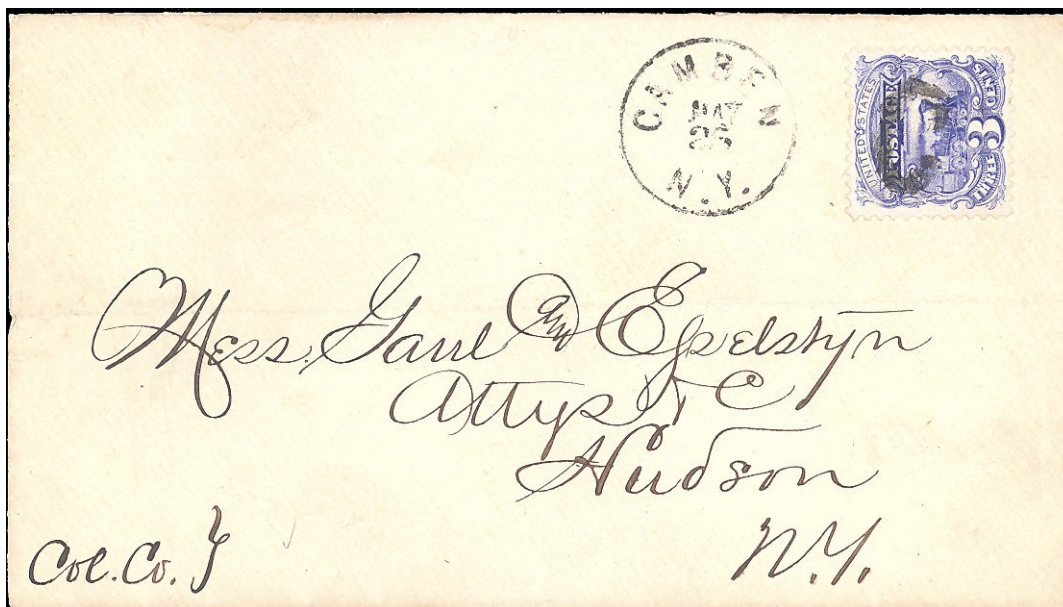 CAMDEN
MAY
26
N.Y.
UNITED STATES
POSTAGE
THREE 3 CENTS
Mess. Gaul and Esselstyn
Attys & C
Hudson
N.Y.
Col. Co.